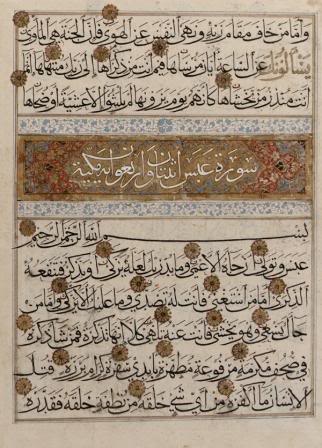 وأما من خاف مقام ربه ونهى النفس عن الهوى فإن الجنة هي المأوى
يسألونك عن الساعة أيان مرساها فيم أنت من ذكراها إلى ربك منتهاها إنما
أنت منذر من يخشاها كأنهم يوم يرونها لم يلبثوا إلا عشية أو ضحاها
سورة عبس اثنتان واربعون اية مكية
بسم الله الرحمن الرحيم
عبس وتولى أن جاءه الأعمى وما يدريك لعله يزكى أو يذكر فتنفعه
الذكرى أما من استغنى فأنت له تصدى وما عليك ألا يزكى وأما من
جاءك يسعى وهو يخشى فأنت عنه تلهى كلا إنها تذكرة فمن شاء ذكره
في صحف مكرمة مرفوعة مطهرة بأيدي سفرة كرام بررة قتل
الإنسان ما أكفره من أي شيء خلقه من نطفة خلقه فقدره